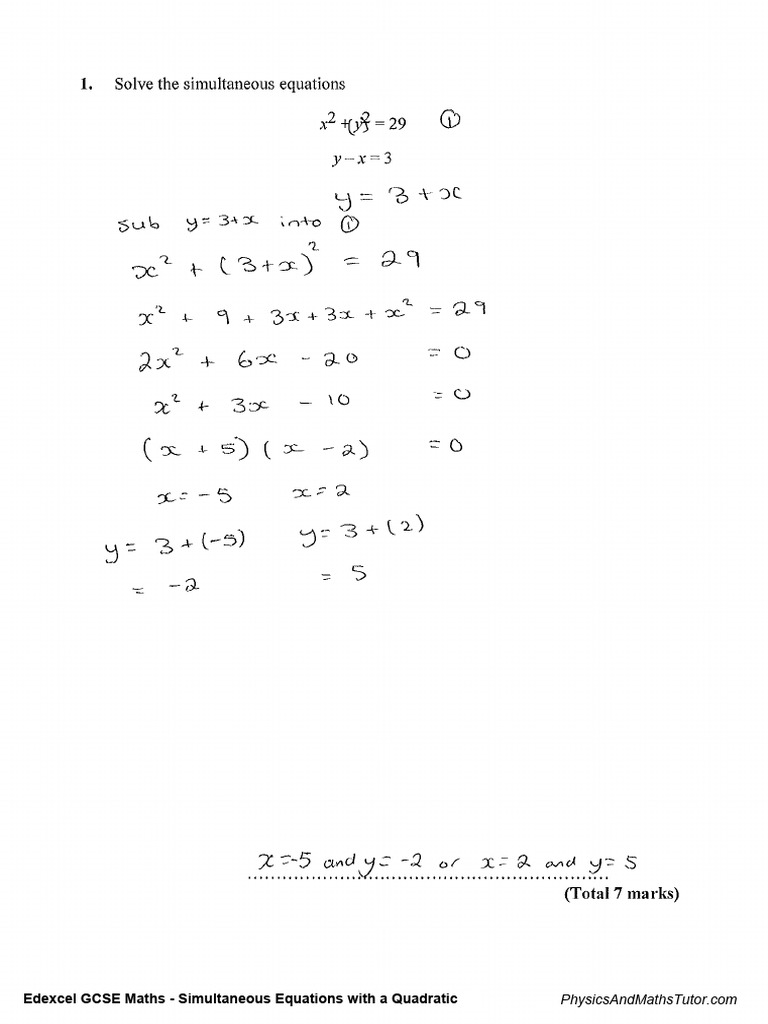 1. Solve the simultaneous equations
x² + (y)² = 29 ①
y – x = 3
y = 3 + x
sub y = 3+x into ①
x² + (3+x)² = 29
x² + 9 + 3x + 3x + x² = 29
2x² + 6x - 20 = 0
x² + 3x - 10 = 0
(x + 5) (x - 2) = 0
x = -5 x = 2
y = 3 + (-5) y = 3 + (2)
= -2 = 5
x = -5 and y = -2 or x = 2 and y = 5
(Total 7 marks)
Edexcel GCSE Maths - Simultaneous Equations with a Quadratic PhysicsAndMathsTutor.com